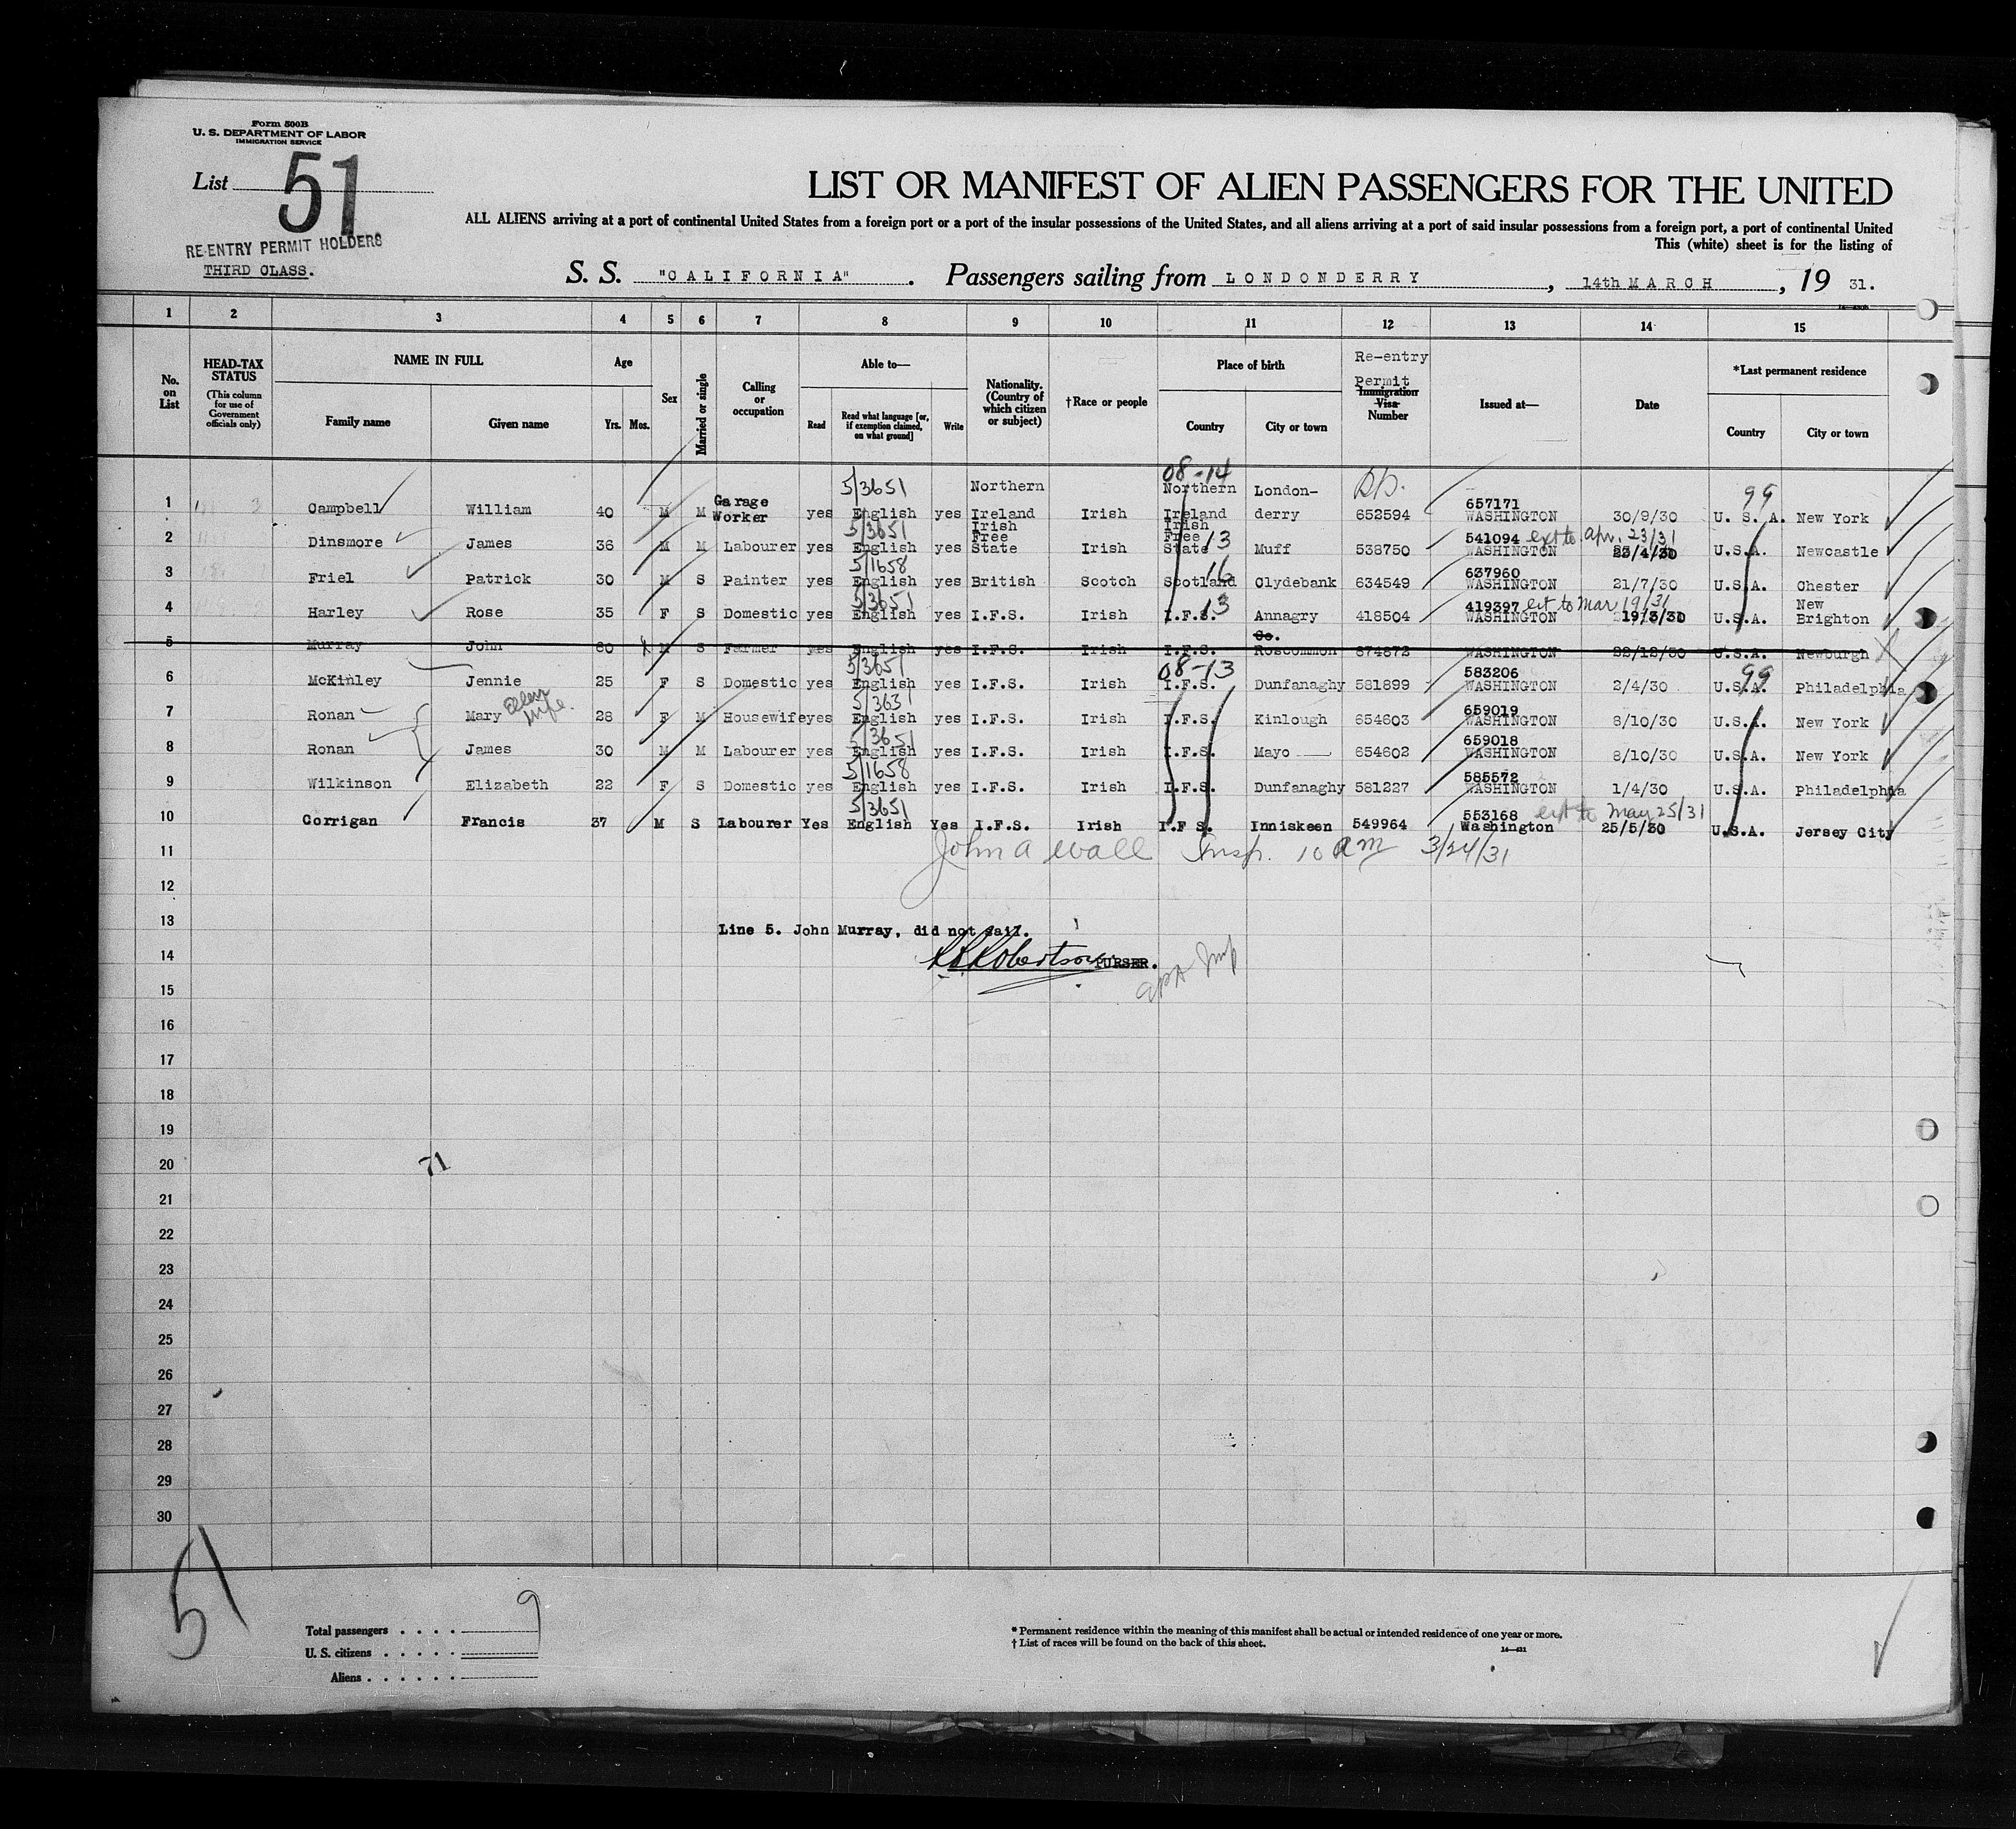 Form 500B
U. S. DEPARTMENT OF LABOR
IMMIGRATION SERVICE
List 51
RE-ENTRY PERMIT HOLDERS
THIRD CLASS.
LIST OR MANIFEST OF ALIEN PASSENGERS FOR THE UNITED
ALL ALIENS arriving at a port of continental United States from a foreign port or a port of the insular possessions of the United States, and all aliens arriving at a port of said insular possessions from a foreign port, a port of continental United
This (white) sheet is for the listing of
S. S. "CALIFORNIA". Passengers sailing from LONDONDERRY, 14th MARCH, 19 31.
1 2 3 4 5 6 7 8 9 10 11 12 13 14 15
No. on List
HEAD-TAX STATUS (This column for use of Government officials only)
NAME IN FULL Family name Given name
Age Yrs. Mos.
Sex
Married or single
Calling or occupation
Able to— Read Read what language [or, if exemption claimed, on what ground] Write
Nationality. (Country of which citizen or subject)
†Race or people
Place of birth Country City or town
Re-entry Permit Immigration Visa Number
Issued at—
Date
*Last permanent residence Country City or town
5/3651 08-14 99
1 Campbell William 40 M M Garage Worker yes English yes Northern Ireland Irish Northern Ireland London-derry 652594 657171 WASHINGTON 30/9/30 U. S. A. New York
5/3651 13
2 Dinsmore James 36 M M Labourer yes English yes Irish Free State Irish Irish Free State Muff 538750 541094 ext to Apr. 23/31 WASHINGTON 23/4/30 U.S.A. Newcastle
5/1658 16
3 Friel Patrick 30 M S Painter yes English yes British Scotch Scotland Clydebank 634549 637960 WASHINGTON 21/7/30 U.S.A. Chester
5/3651 13
4 Harley Rose 35 F S Domestic yes English yes I.F.S. Irish I.F.S. Annagry 418504 419397 ext to Mar 19/31 WASHINGTON 19/3/30 U.S.A. New Brighton
5 Murray John M S Farmer yes English yes I.F.S. Irish I.F.S. Co. Roscommon 674672 WASHINGTON 22/12/30 U.S.A. Newburgh
5/3651 08-13 99
6 McKinley Jennie 25 F S Domestic yes English yes I.F.S. Irish I.F.S. Dunfanaghy 581899 583206 WASHINGTON 2/4/30 U.S.A. Philadelphia
5/3631
7 Ronan Mary Ellen wife. 28 F M Housewife yes English yes I.F.S. Irish I.F.S. Kinlough 654603 659019 WASHINGTON 8/10/30 U.S.A. New York
5/3651
8 Ronan James 30 M M Labourer yes English yes I.F.S. Irish I.F.S. Mayo 654602 659018 WASHINGTON 8/10/30 U.S.A. New York
5/1658
9 Wilkinson Elizabeth 22 F S Domestic yes English yes I.F.S. Irish I.F.S. Dunfanaghy 581227 585572 WASHINGTON 1/4/30 U.S.A. Philadelphia
5/3651
10 Corrigan Francis 37 M S Labourer Yes English Yes I.F.S. Irish I.F S. Inniskeen 549964 553168 ext to May 25/31 Washington 25/5/30 U.S.A. Jersey City
11 John A Wall Insp. 10 am 3/24/31
12
13 Line 5. John Murray, did not sail.
14 Robertson PURSER.
15
16
17
18
19
20 71
21
22
23
24
25
26
27
28
29
30
51
Total passengers . . . . 9
U. S. citizens . . . . .
Aliens . . . . . .
* Permanent residence within the meaning of this manifest shall be actual or intended residence of one year or more.
† List of races will be found on the back of this sheet.